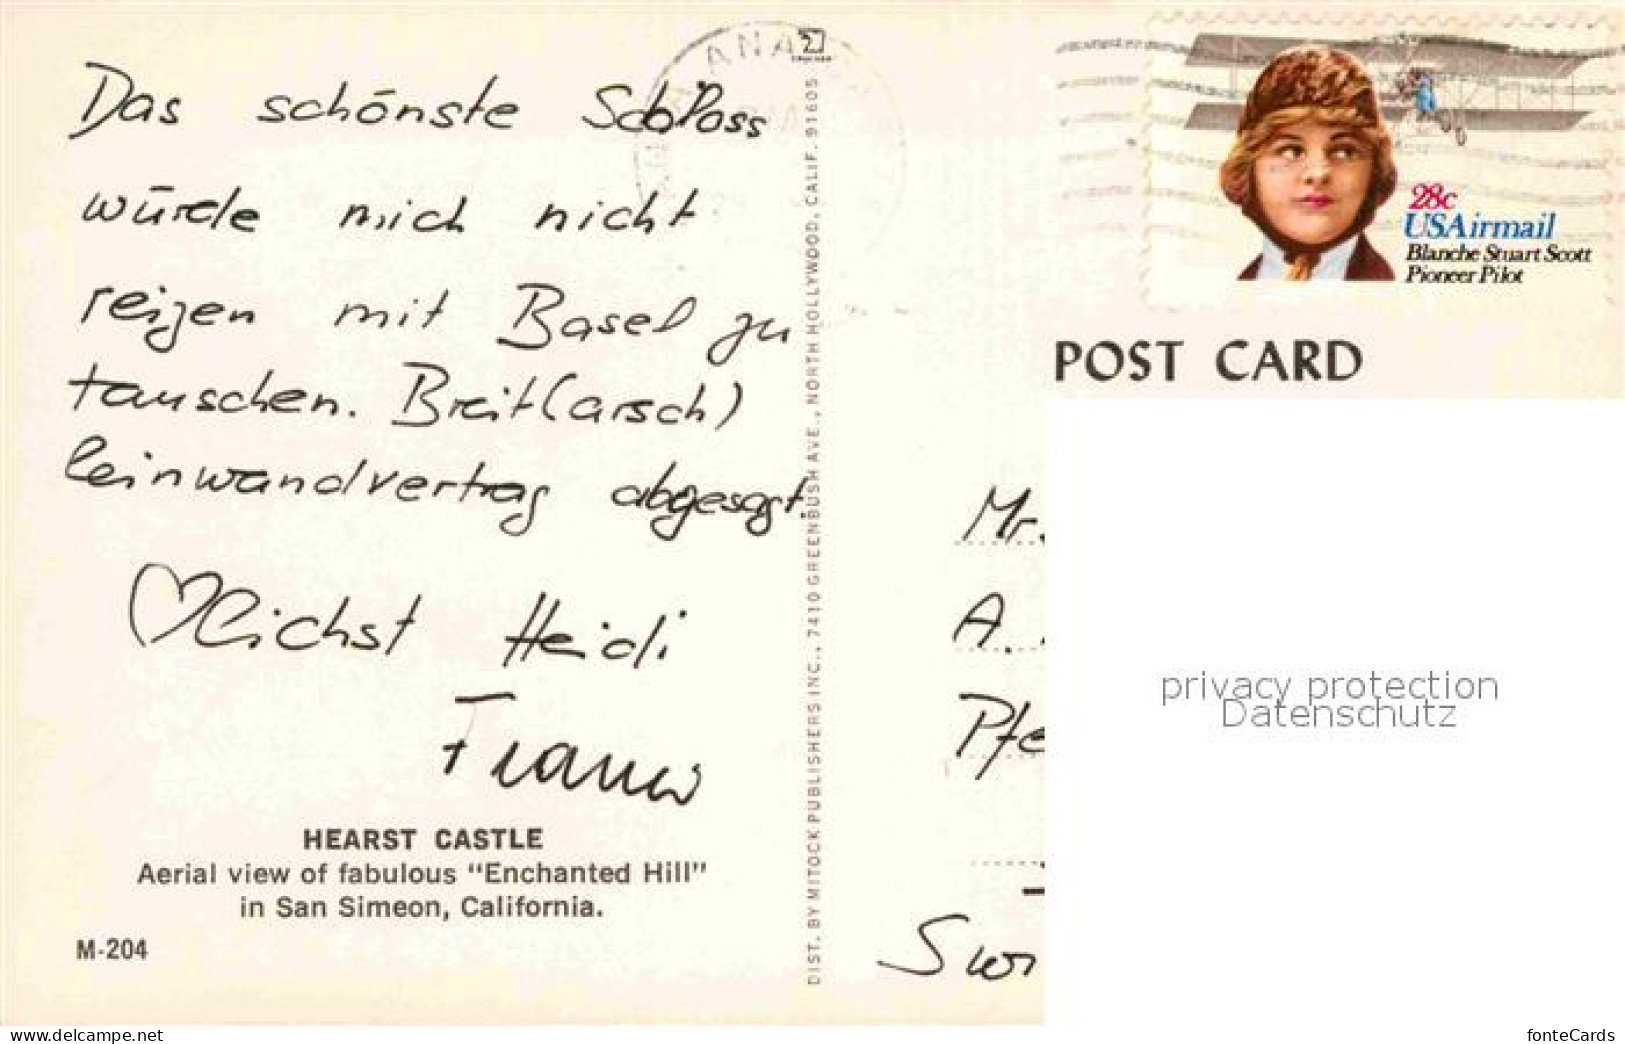 Das schönste Schloss
würde mich nicht
reizen mit Basel zu
tauschen. Breit(arsch)
leinwandvertrag abgesagt.
♡lichst Heidi
HEARST CASTLE
Aerial view of fabulous "Enchanted Hill"
in San Simeon, California.
M-204
DIST. BY MITOCK PUBLISHERS INC., 7410 GREENBUSH AVE., NORTH HOLLYWOOD, CALIF. 91605
28c
USAirmail
Blanche Stuart Scott
Pioneer Pilot
POST CARD
Mr.
A.
Pfe
Swi
privacy protection
Datenschutz
www.ansichtskarten-center.de
fonteCards